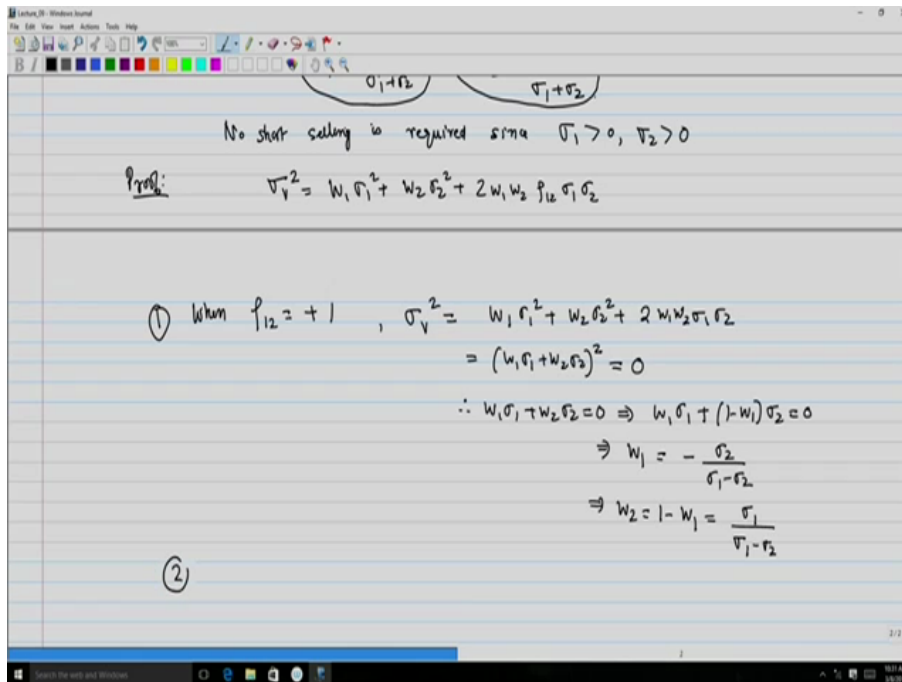 Lecture_09 - Windows Journal
File Edit View Insert Actions Tools Help
100%
B I
σ₁+σ₂ σ₁+σ₂
No short selling is required since σ₁ > 0, σ₂ > 0
Proof: σᵥ² = W₁ σ₁² + W₂ σ₂² + 2 w₁ w₂ ρ₁₂ σ₁ σ₂
① When ρ₁₂ = + 1 , σᵥ² = W₁ σ₁² + W₂ σ₂² + 2 w₁w₂ σ₁ σ₂
= (w₁σ₁ + w₂ σ₂)² = 0
∴ w₁σ₁ + w₂σ₂ = 0 ⇒ w₁ σ₁ + (1-w₁) σ₂ = 0
⇒ w₁ = - σ₂ / σ₁-σ₂
⇒ w₂ = 1 - w₁ = σ₁ / σ₁-σ₂
②
2/2
2
Search the web and Windows